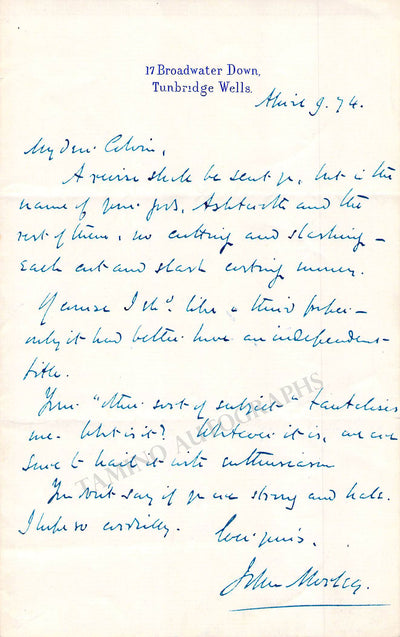 17 Broadwater Down,
Tunbridge Wells.
April 9. 74.
My dear Colvin,
A revise shall be sent you, but in the
name of your gods, Ashtaroth and the
rest of them, no cutting and slashing –
Each cut and slash costing money.
Of course I shd. like a third paper –
only it had better have an independent
title.
Your "other sort of subject" tantalises
me. What is it? Whatever it is, we are
sure to hail it with enthusiasm
You don't say if you are strong and hale.
I hope so cordially.
Ever yours,
John Morley.
TAMINO AUTOGRAPHS